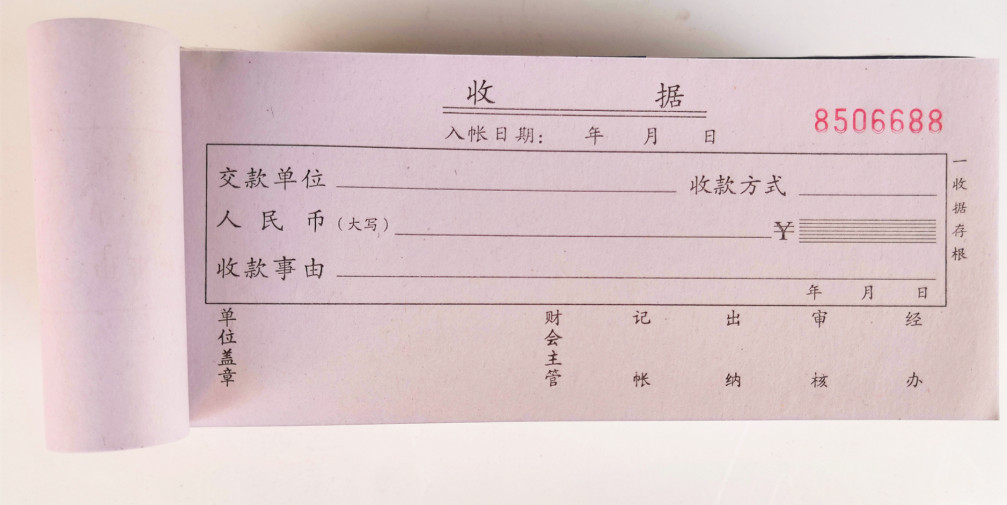 收 据
8506688
入帐日期： 年 月 日
交款单位 收款方式
人民币（大写） ¥
收款事由
年 月 日
一收据存根
单位盖章 财会主管 记帐 出纳 审核 经办